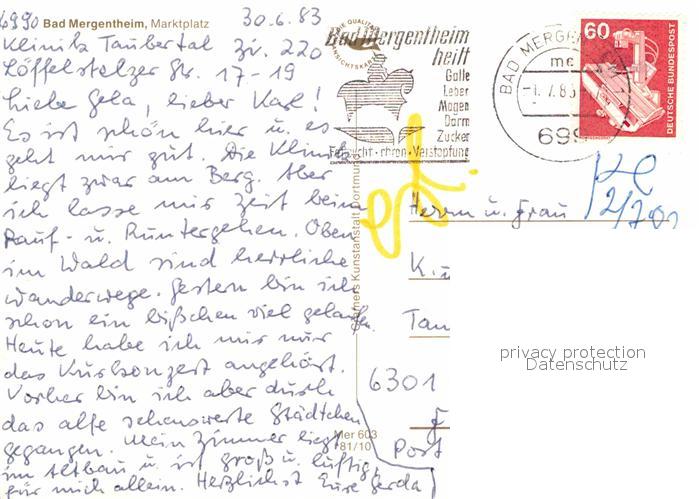 6990 Bad Mergentheim, Marktplatz 30.6.83
Klinik Taubertal Zi. 220
Löffelstelzer Str. 17-19
Liebe Gela, lieber Karl!
Es ist schön hier u. es
geht mir gut. Die Klinik
liegt zwar am Berg. Aber
ich lasse mir Zeit beim
Rauf- u. Runtergehen. Oben
im Wald sind herrliche
Wanderwege. Gestern bin ich
schon ein bißchen viel gelaufen.
Heute habe ich mir nur
das Kurkonzert angehört.
Vorher bin ich aber durch
das alte sehenswerte Städtchen
gegangen. Mein Zimmer liegt
im Altbau u. ist groß u. luftig,
für mich allein. Herzlichst Eure Gerda
Cramers Kunstanstalt Dortmund
Mer 603
81/10
Bad Mergentheim
heilt
Galle
Leber
Magen
Darm
Zucker
Fettsucht · chron. Verstopfung
BAD MERGEN
me
-1.7.83-
699
60
DEUTSCHE BUNDESPOST
Herrn u. Frau
K
Tau
6301
Post
privacy protection
Datenschutz